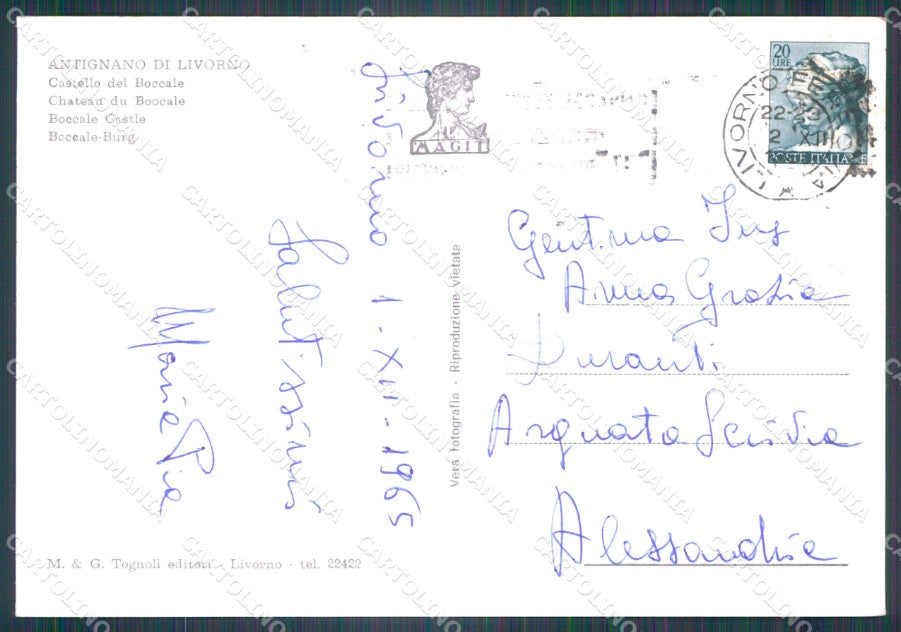 ANTIGNANO DI LIVORNO
Castello del Boccale
Chateau du Boccale
Boccale Castle
Boccale-Burg
Livorno 1-XII-1965
Salutissimi
Maria Pia
M. & G. Tognoli editori - Livorno - tel. 22422
Vera fotografia - Riproduzione vietata
MAGIT
20
LIRE
POSTE ITALIANE
LIVORNO
22-23
2 XII
Gent.ma
Anna Grazia
Duranti
Arquata Scrivia
Alessandria
CARTOLINOMANIA